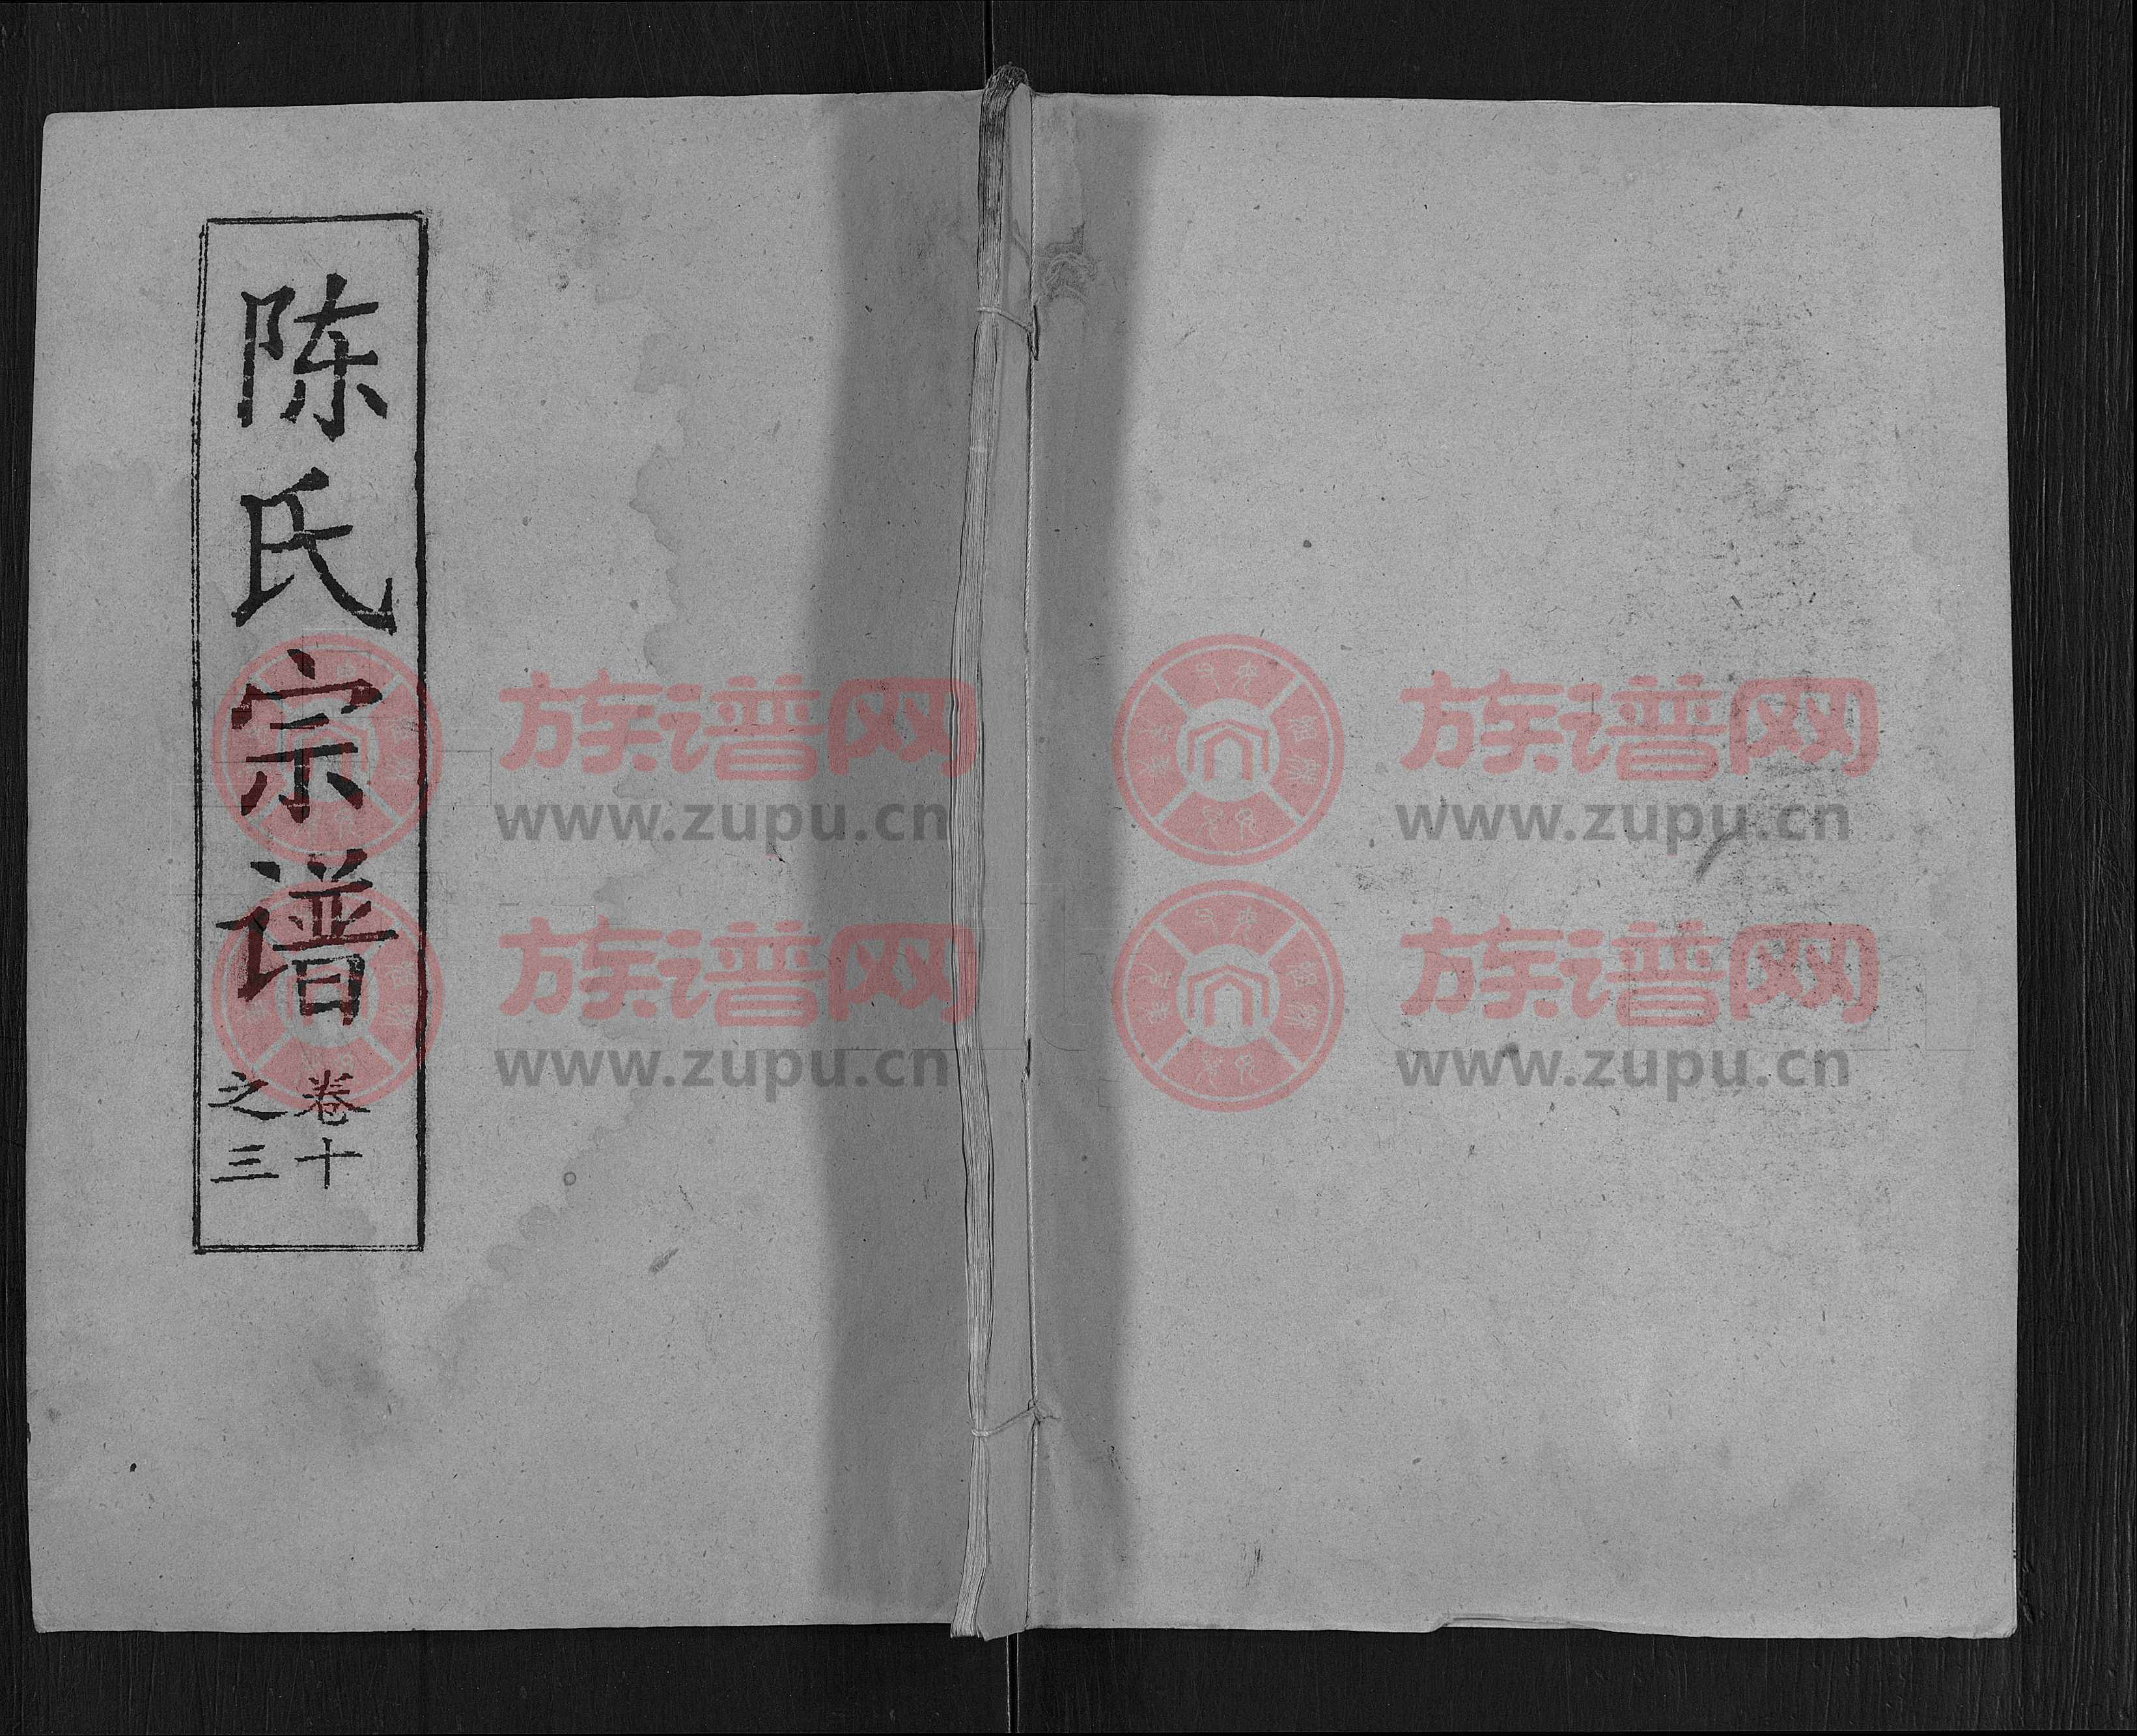 陈氏宗谱
卷十
之三
族谱网
www.zupu.cn
族谱网
www.zupu.cn
族谱网
www.zupu.cn
族谱网
www.zupu.cn